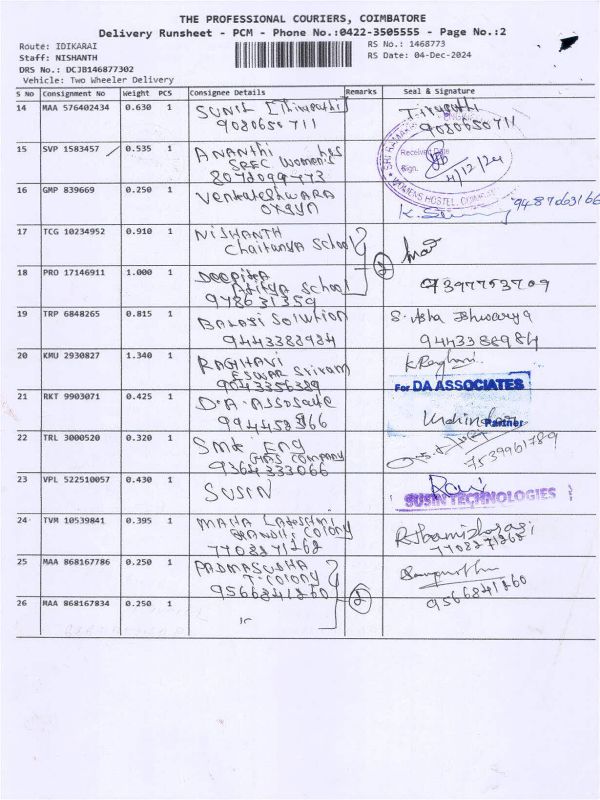 THE PROFESSIONAL COURIERS, COIMBATORE
Delivery Runsheet - PCM - Phone No.:0422-3505555 - Page No.:2
Route: IDIKARAI
RS No.: 1468773
Staff: NISHANTH
RS Date: 04-Dec-2024
DRS No.: DCJB146877302
Vehicle: Two Wheeler Delivery
S No Consignment No Weight PCS Consignee Details Remarks Seal & Signature
14 MAA 576402434 0.630 1 SUNIL [Tirupathi] Tirupathi
9080650711 9080650711
15 SVP 1583457 0.535 1 ANANTHI
SREC Women's Received Date
8072099773 Sign. 4/12/24
WOMENS HOSTEL, COIMB
16 GMP 839669 0.250 1 Venkateshwara 9487063166
17 TCG 10234952 0.910 1 NISHANTH
Chaitanya School
2
18 PRO 17146911 1.000 1 DEEPIKA
Aditya School 9397753709
978631359
19 TRP 6848265 0.815 1 BALAJI Solution S. Asha Ishwarya
9443388984 9443388984
20 KMU 2930827 1.340 1 RAGHAVI K Raghavi
ESWAR Sriram
9043356389
21 RKT 9903071 0.425 1 D.A. Associate For DA ASSOCIATES
994458366 Partner
22 TRL 3000520 0.320 1 SMK ENG
GAS Company 7539961789
9364333066
23 VPL 522510057 0.430 1 SUSIN Ravi
SUSIN TECHNOLOGIES
24 TVM 10539841 0.395 1 MAHA Lakshmi
GANDHI Colony
7708271268 7708271268
25 MAA 868167786 0.250 1 PADMASUDHA
T. Colony
9566841860 9566841860
2
26 MAA 868167834 0.250 1 "